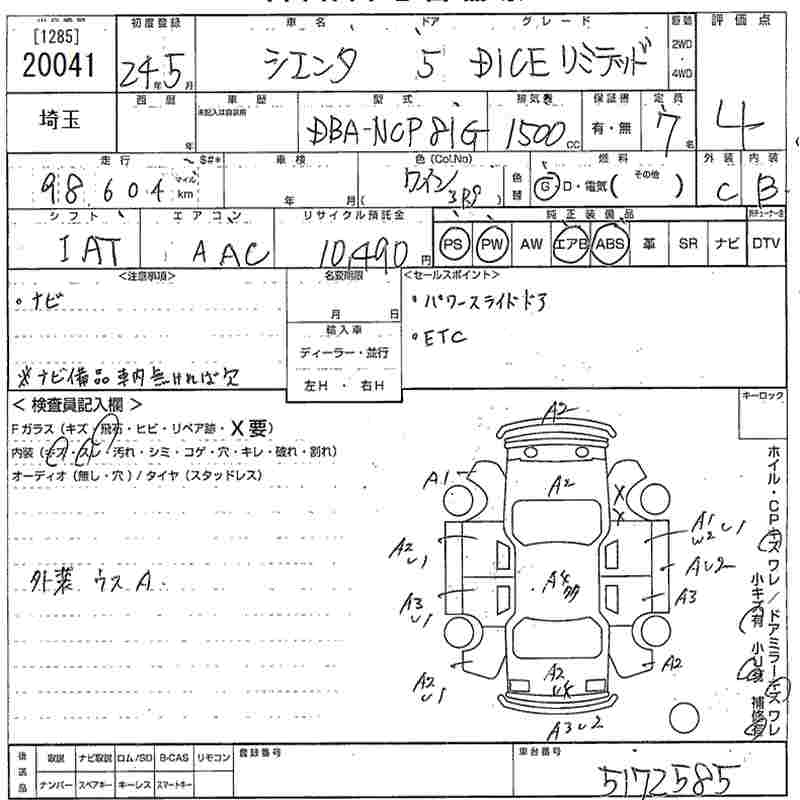 初度登録 車名 ドア グレード 駆動 評価点
[1285]
20041 24年5月 シエンタ 5 DICE リミテッド 2WD・4WD 4
埼玉 西暦 年 車歴 未記入は自家用 型式 DBA-NCP81G 排気量 1500cc 保証書 有・無 定員 7名
走行 $#* 98,604 マイル km 車検 年 月 色(Col.No) ワイン ( 3R9 ) 色替 燃料 G・D・電気( その他 ) 外装 C 内装 B
シフト IAT エアコン AAC リサイクル預託金 10,490円 純正装備品 PS PW AW エアB ABS 革 SR ナビ DTV
<注意事項> 名変期限 <セールスポイント>
・ナビ 月 日 ・パワースライドドア
輸入車 ・ETC
ディーラー・並行
※ナビ備品車内無ければ欠 左H ・ 右H
< 検査員記入欄 > キーロック
Fガラス (キズ・飛石・ヒビ・リペア跡・X要)
内装 (キズ・スレ・汚れ・シミ・コゲ・穴・キレ・破れ・割れ)
オーディオ (無し・穴) / タイヤ (スタッドレス)
外装 ウス A
A2
A2
A1
X
X
A1
W2 U1
A2
U1
AU2
A4
A3
U1
A3
A2
U1
A2
A2
U4
A3U2
ホイル・CPキズ ワレ / ドアミラーキズ ワレ
小キズ有 小U有 補修有
後送品 取説 ナビ取説 ロム/SD B-CAS リモコン 登録番号 車台番号
ナンバー スペアキー キーレス スマートキー 5172585